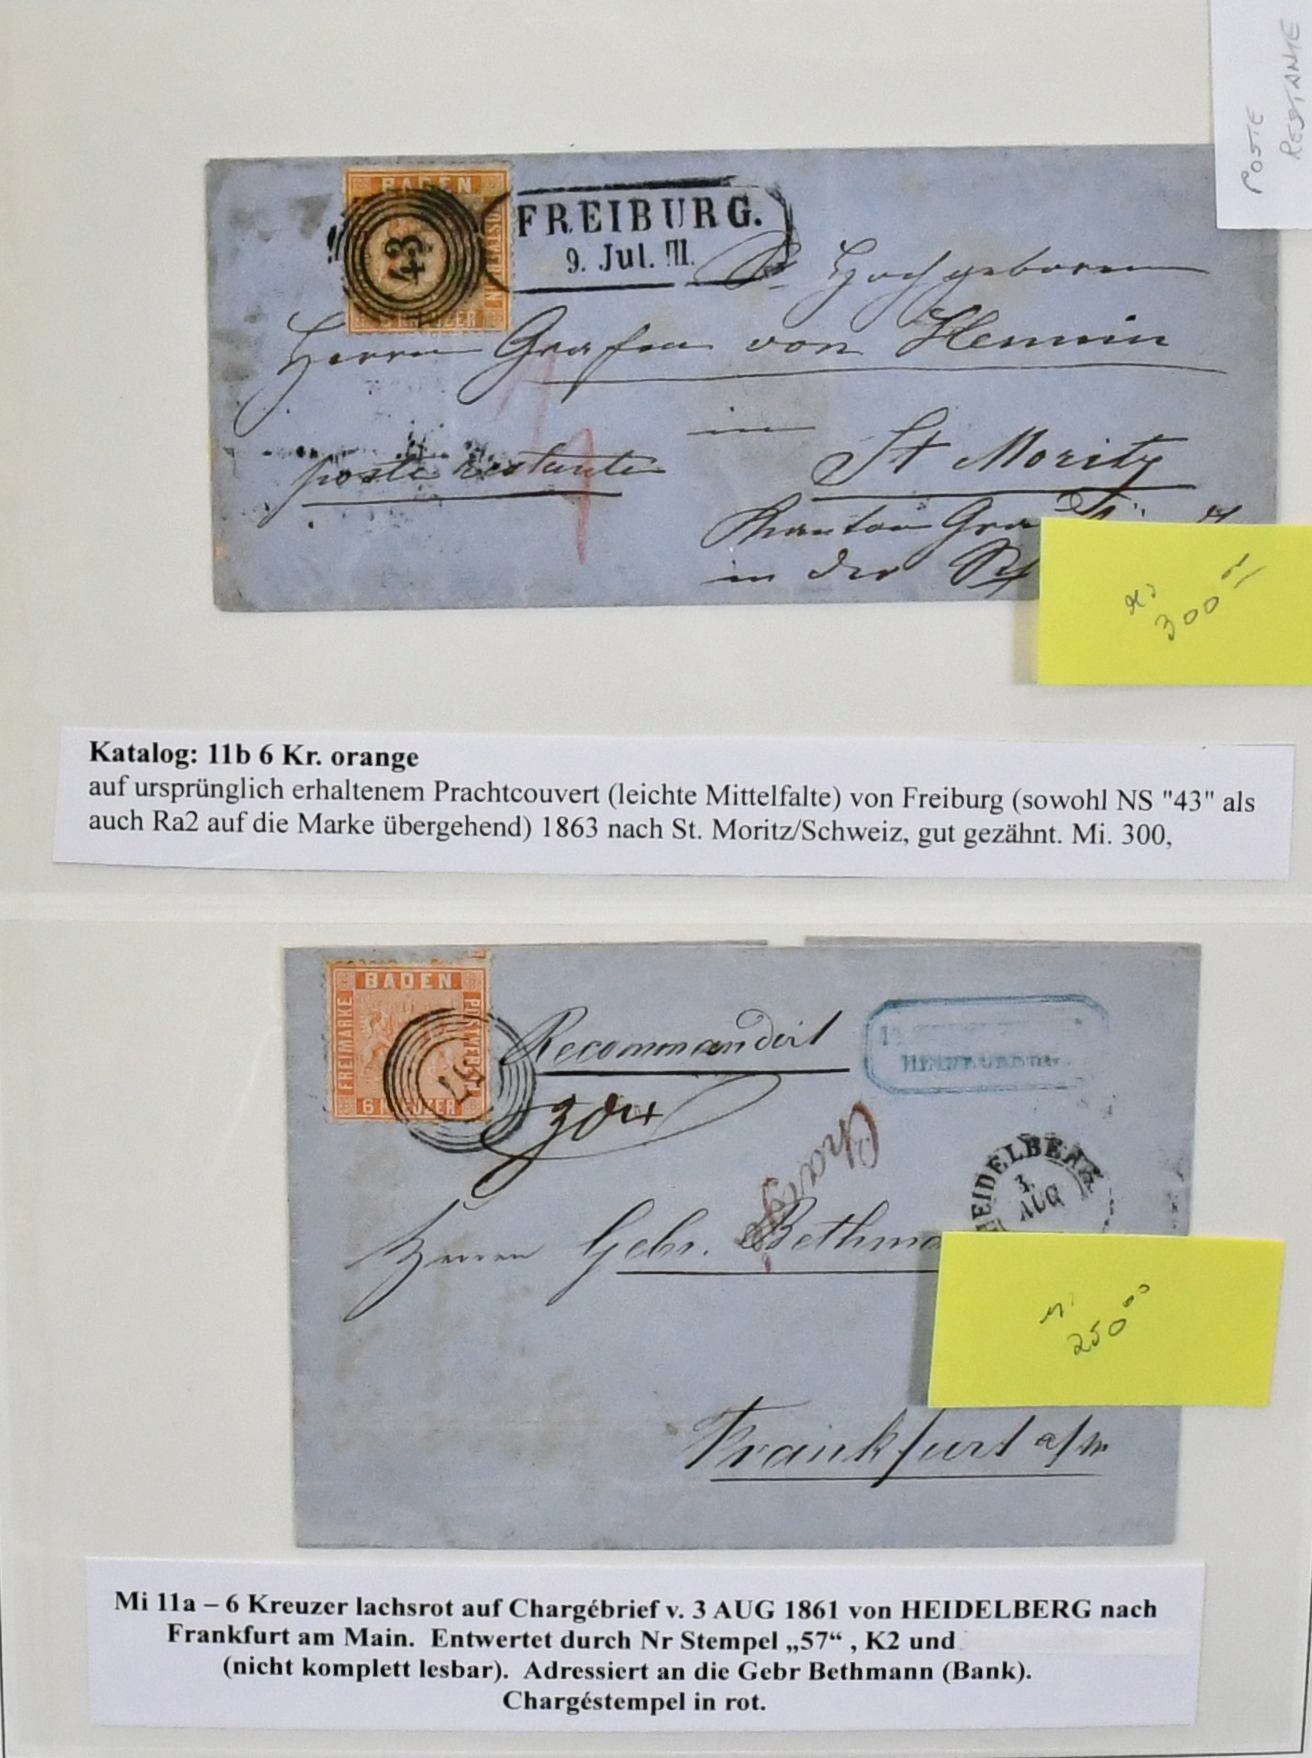 POSTE
RESTANTE
BADEN
43
FREIBURG.
9. Jul. III.
Sr Hochgeboren
Herrn Grafen von Hennin
in
poste restante
St Moritz
Kanton Gra
in der Sch
Mi
300
Katalog: 11b 6 Kr. orange
auf ursprünglich erhaltenem Prachtcouvert (leichte Mittelfalte) von Freiburg (sowohl NS "43" als
auch Ra2 auf die Marke übergehend) 1863 nach St. Moritz/Schweiz, gut gezähnt. Mi. 300,
BADEN
FREIMARKE
POSTVEREIN
6 KREUZER
57
Recommandirt
HEIDELBERG
Chargé
HEIDELBERG
3.
AUG
Herren Gebr. Bethma
Mi
250
Frankfurt a/m
Mi 11a – 6 Kreuzer lachsrot auf Chargébrief v. 3 AUG 1861 von HEIDELBERG nach
Frankfurt am Main. Entwertet durch Nr Stempel „57“ , K2 und
(nicht komplett lesbar). Adressiert an die Gebr Bethmann (Bank).
Chargéstempel in rot.